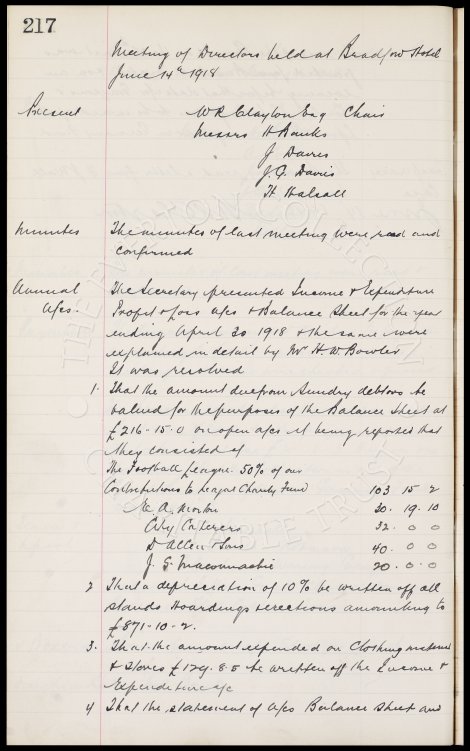 217
Meeting of Directors held at Bradford Hotel
June 14th 1918
Present W R Clayton Esq Chair
Messrs H Banks
J Davies
J. G. Davies
H Halsall
Minutes The minutes of last meeting were read and
confirmed
Annual The Secretary presented Income & Expenditure
A/cs. Profit & Loss a/cs & Balance Sheet for the year
ending April 30 1918 & the same were
explained in detail by Mr H. W Bowler
It was resolved
1. That the amount due from Sundry debtors be
valued for the purposes of the Balance Sheet at
£216. 15. 0 on open a/cs it being reported that
they consisted of
The Football League. 50% of our
Contributions to League Charity Fund 103 15 2
A. Norton 20. 19. 10
City Caterers 32. 0 0
D Allen & Sons 40. 0 0
J. G. 20. 0. 0
2 That a depreciation of 10% be written off all
stands hoardings & erections amounting to
£871-10-2.
3. That the amount expended on Clothing material
& Stores £129. 8. 5 be written off the Income &
Expenditure a/c
4 That the statement of a/cs Balance Sheet and
THE EVERTON COLLECTION
CHARITABLE TRUST